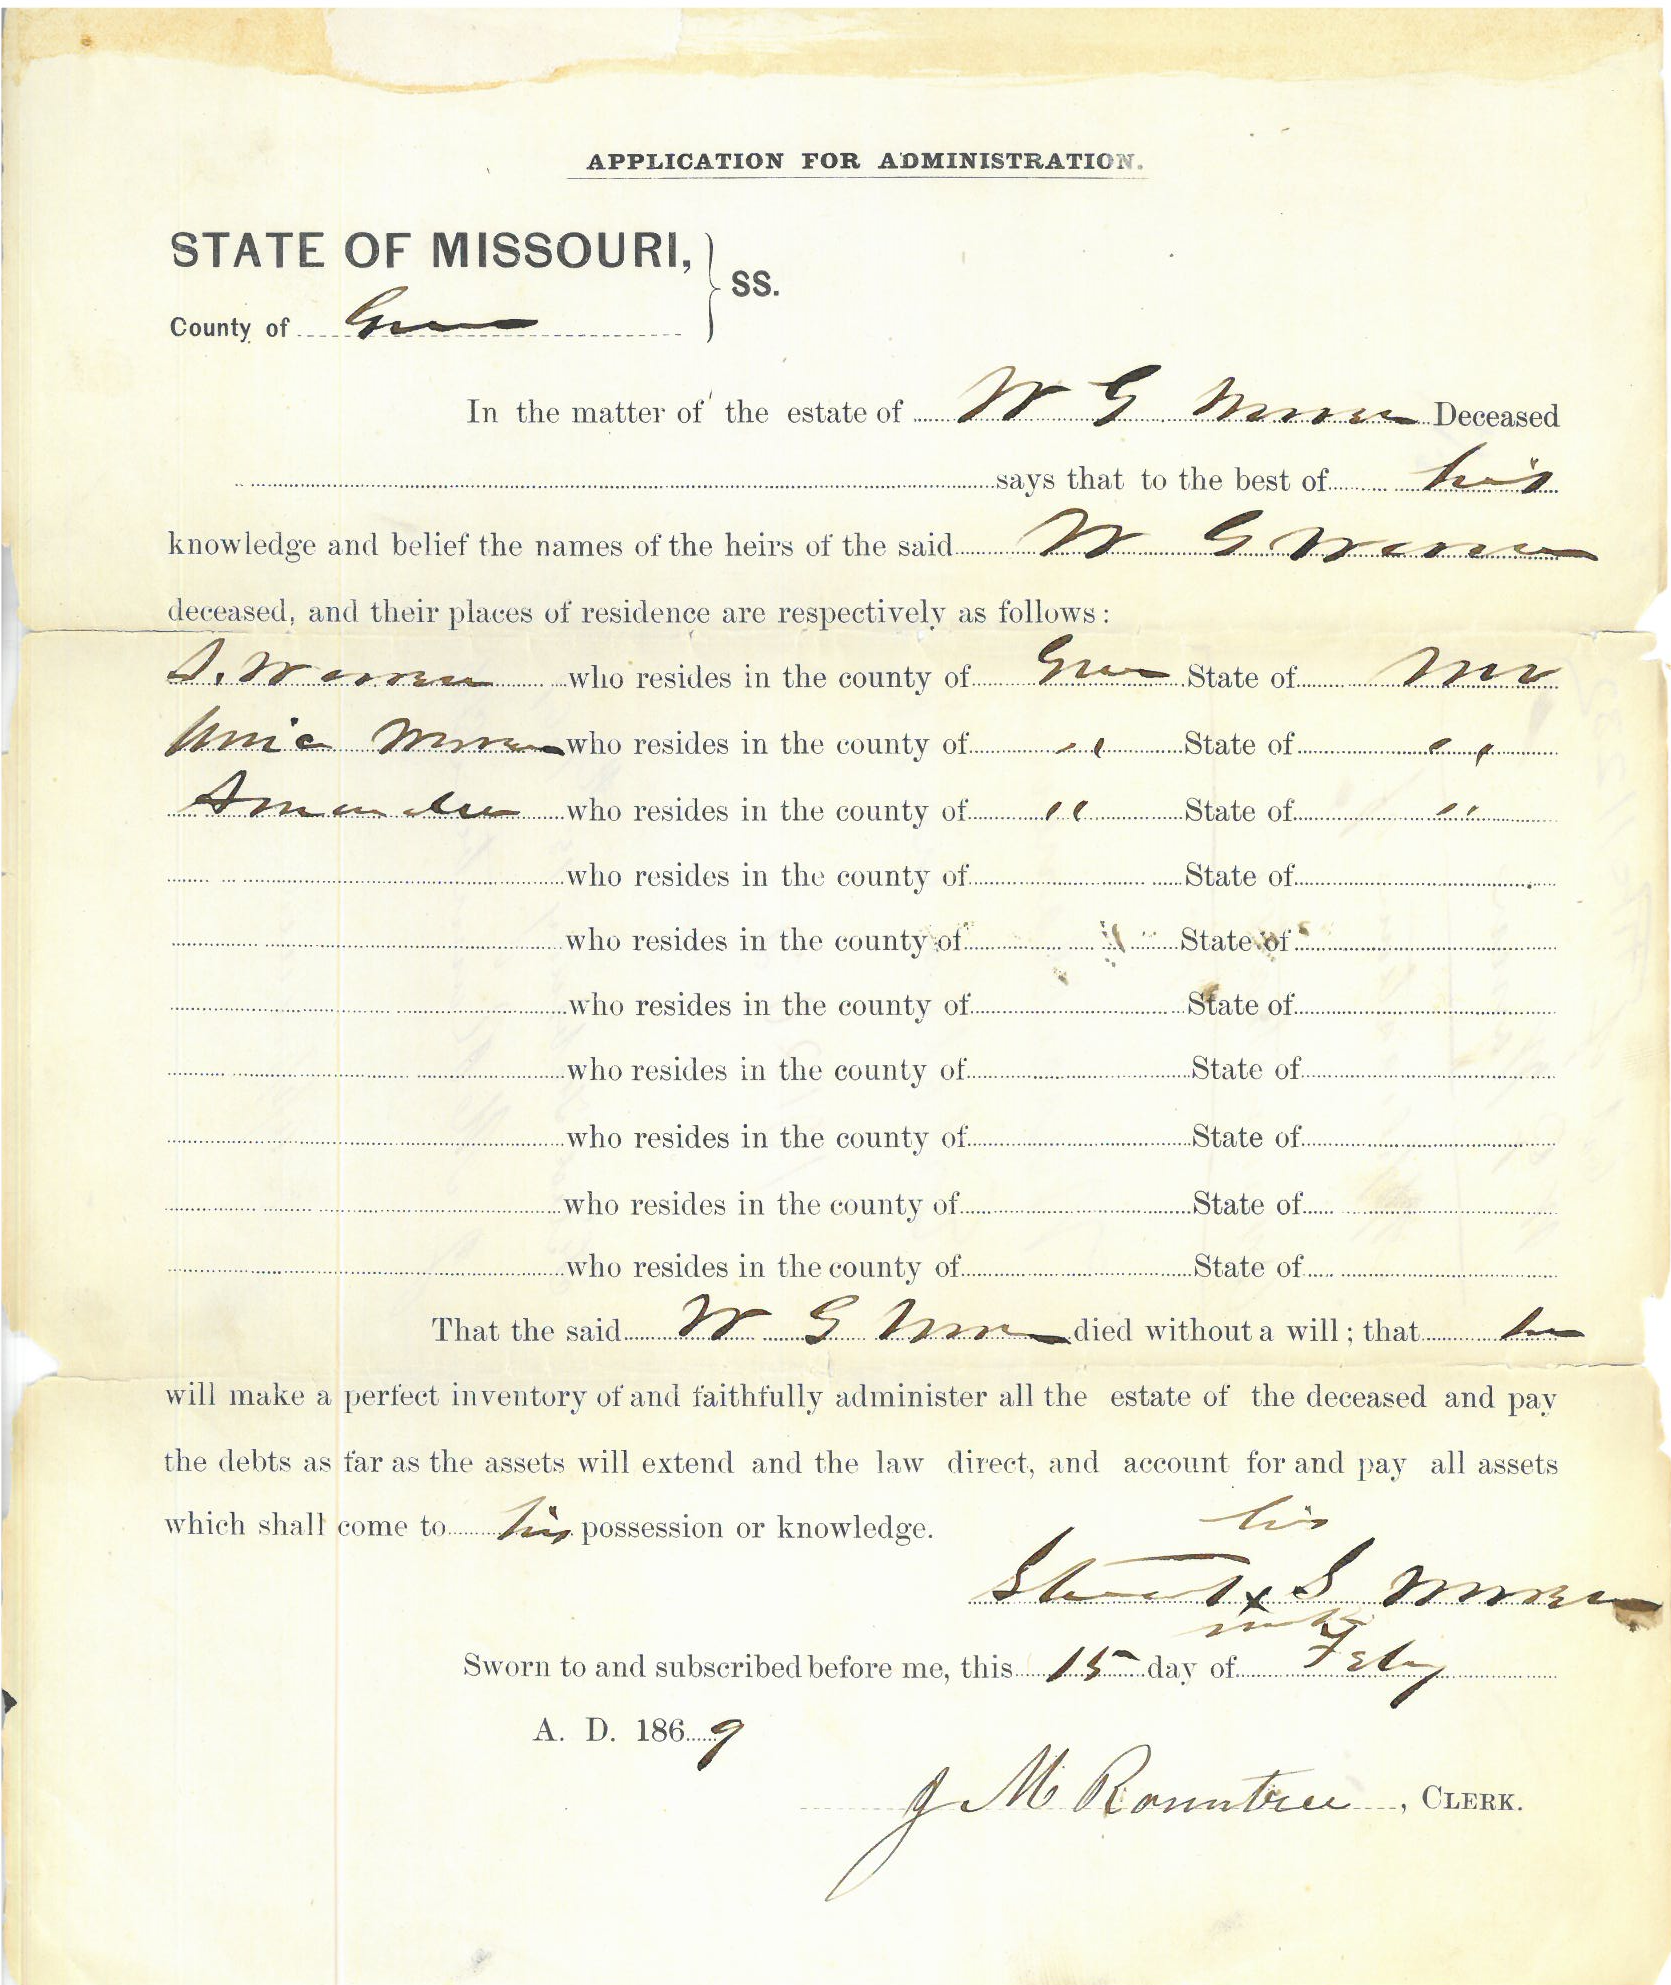 APPLICATION FOR ADMINISTRATION.
STATE OF MISSOURI, } SS.
County of Greene
In the matter of the estate of W G Warren Deceased
says that to the best of his
knowledge and belief the names of the heirs of the said W G Warren
deceased, and their places of residence are respectively as follows:
S. Warren who resides in the county of Greene State of Mo
Warren who resides in the county of " State of "
Amanda who resides in the county of " State of "
who resides in the county of State of
who resides in the county of State of
who resides in the county of State of
who resides in the county of State of
who resides in the county of State of
who resides in the county of State of
who resides in the county of State of
That the said W G Warren died without a will; that he
will make a perfect inventory of and faithfully administer all the estate of the deceased and pay
the debts as far as the assets will extend and the law direct, and account for and pay all assets
which shall come to his possession or knowledge.
his
Stewart x S Warren
mark
Sworn to and subscribed before me, this 15 day of Feby
A. D. 1869
J M Rountree, CLERK.